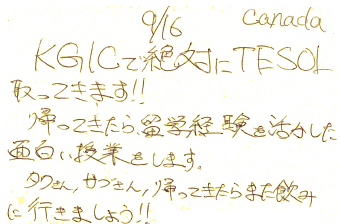 9/16 Canada
KGICで絶対にTESOL
取ってきます!!
帰ってきたら、留学経験を活かした
面白い授業をします。
タクさん、サヴさん、帰ってきたらまた飲み
に行きましょう!!